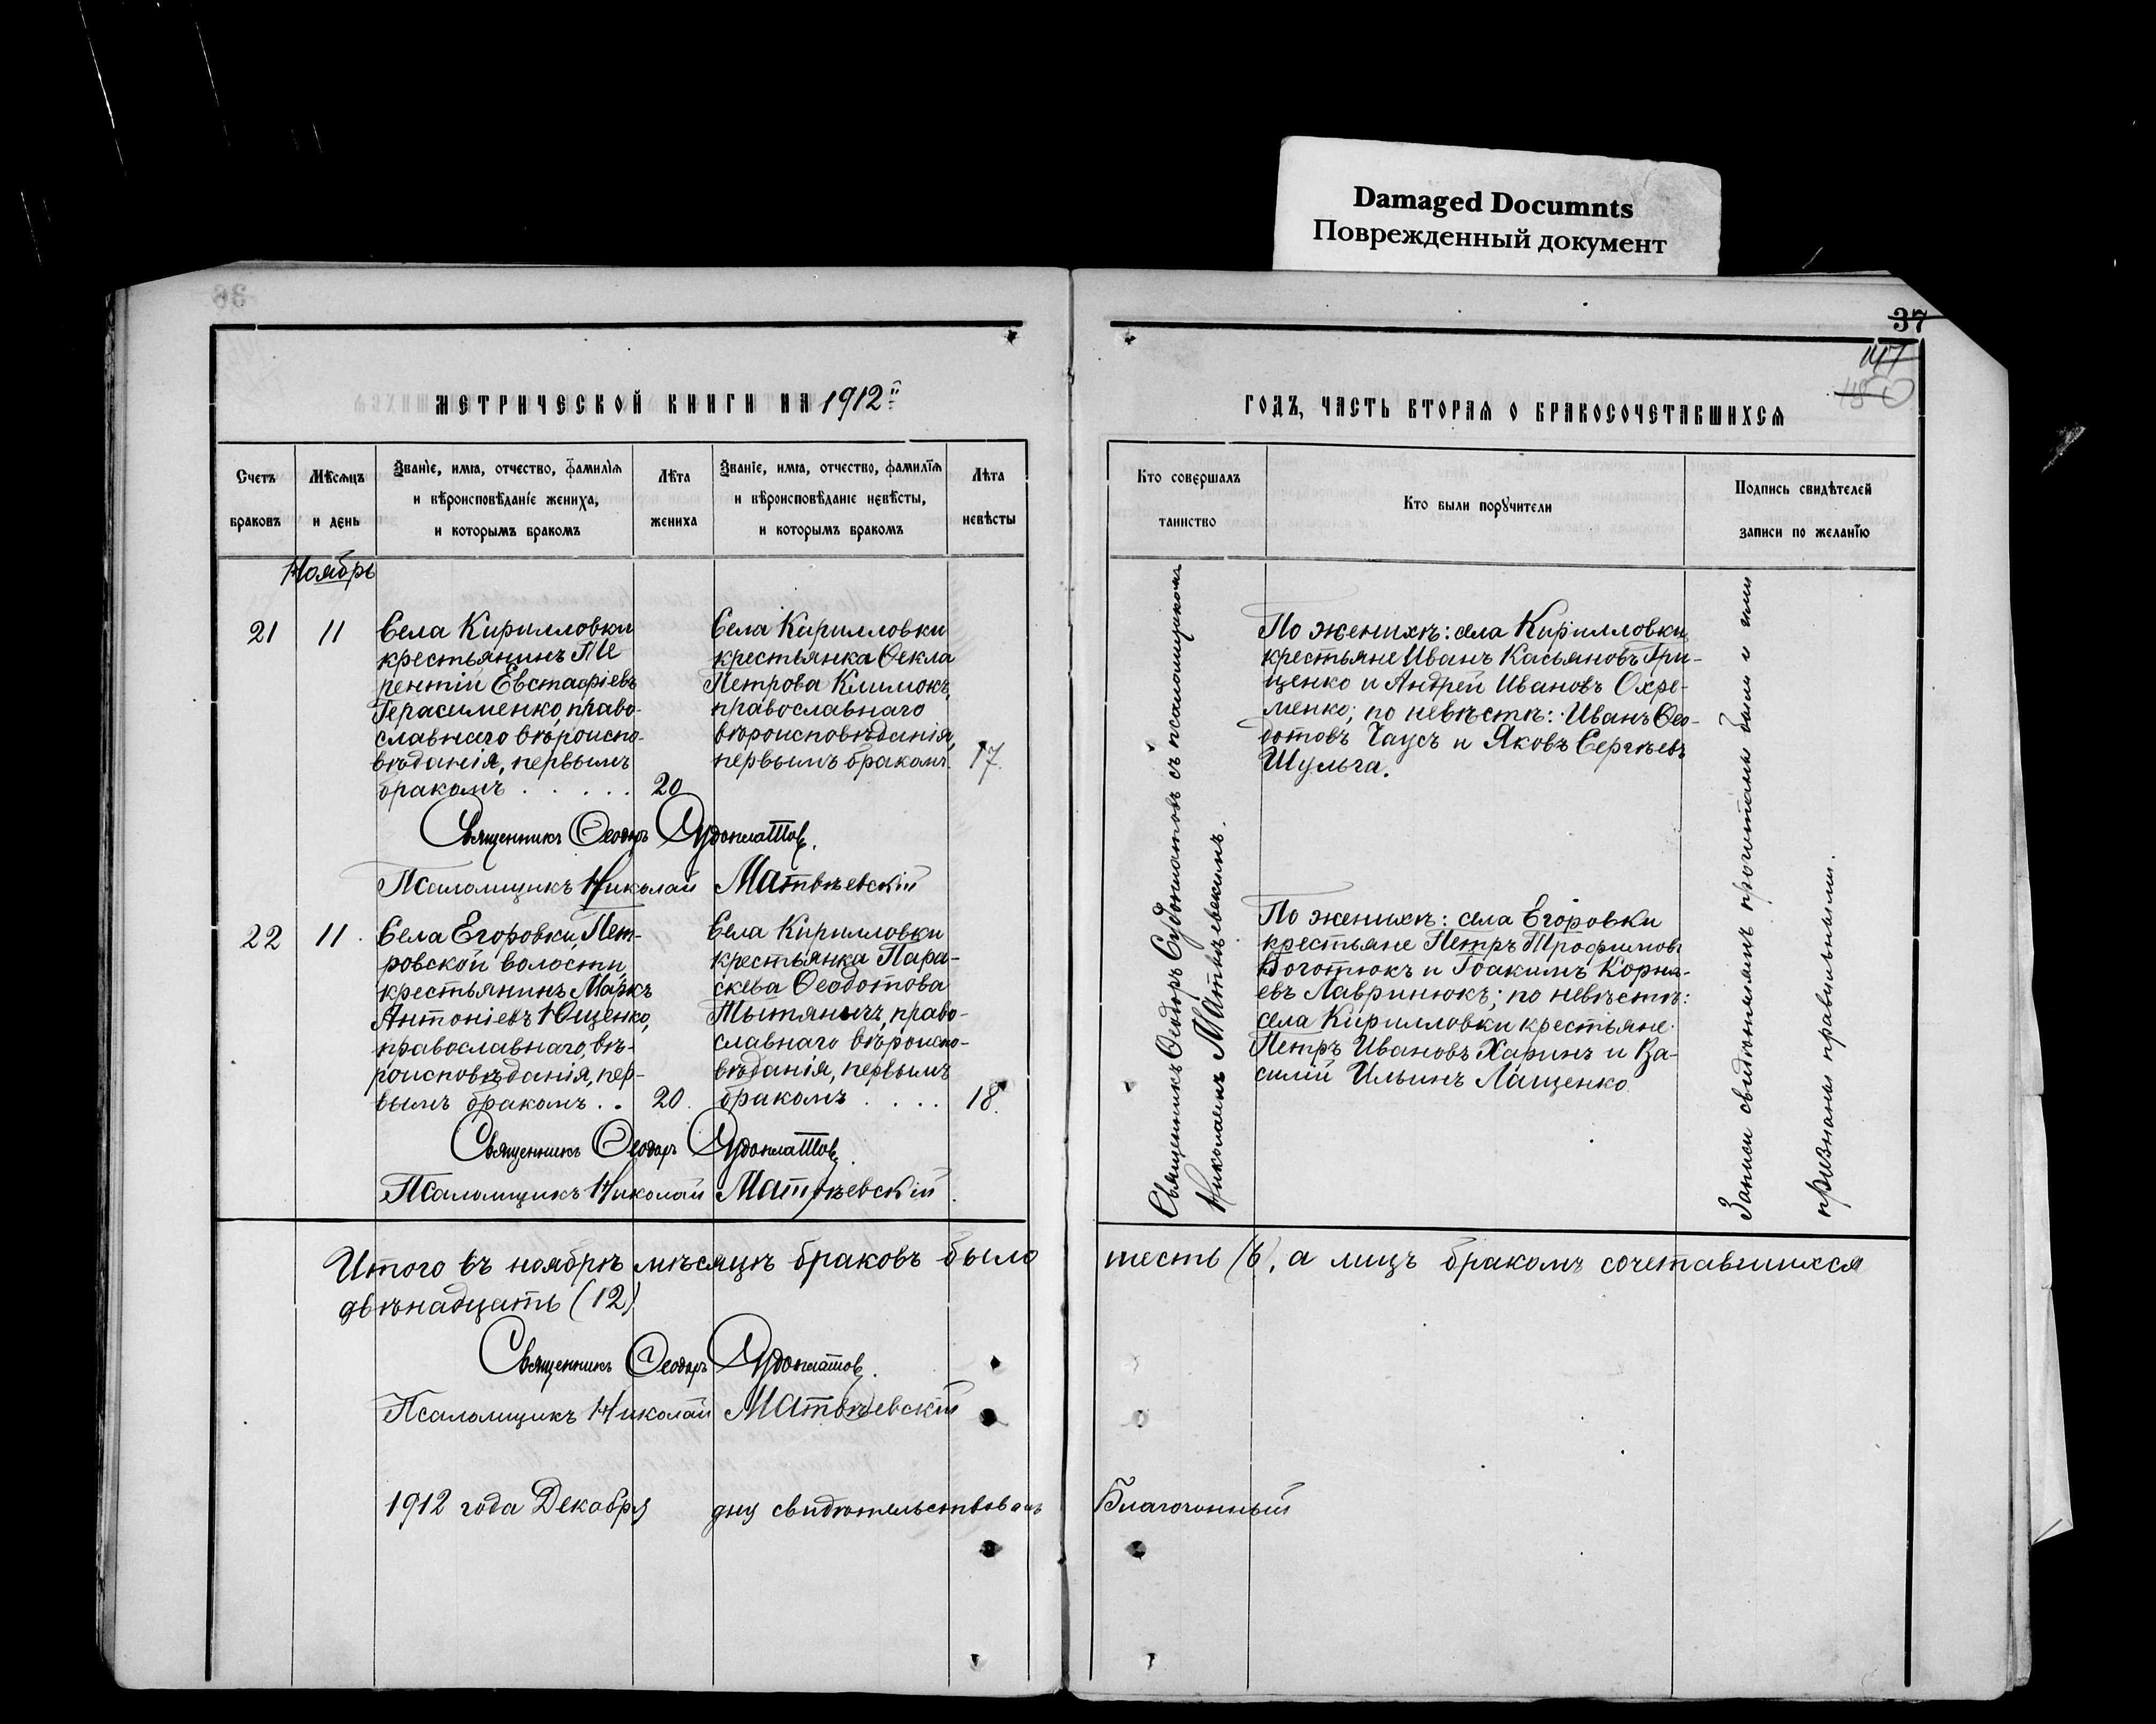 Damaged Documnts
Поврежденный документ
36
37
МЕТРИЧЕСКОЙ КНИГИ НА 1912й
ГОДЪ, ЧАСТЬ ВТОРАѦ О БРАКОСОЧЕТАВШИХСѦ
Счетъ
браковъ
Мѣсяцъ
и день
Званіе, имя, отчество, фамилія
и вѣроисповѣданіе жениха,
и которымъ бракомъ
Лѣта
жениха
Званіе, имя, отчество, фамилія
и вѣроисповѣданіе невѣсты,
и которымъ бракомъ
Лѣта
невѣсты
Кто совершалъ
таинство
Кто были поручители
Подпись свидѣтелей
записи по желанію
Ноябрь
21
11
Села Кирилловки
крестьянинъ Те
рентій Евстафіевъ
Герасименко, право-
славнаго вѣроиспо-
вѣданія, первымъ
бракомъ . . . . .
20
Села Кирилловки
крестьянка Ѳекла
Петрова Климокъ,
православнаго
вѣроисповѣданія,
первымъ бракомъ.
17.
По женихѣ: села Кирилловки
крестьяне Иванъ Касьяновъ Гри-
щенко и Андрей Ивановъ Охре-
менко; по невѣстѣ: Иванъ Ѳео-
дотовъ Чаусъ и Яковъ Сергѣевъ
Шульга.
Священникъ Ѳеодоръ Судоплатовъ.
Псаломщикъ Николай Матвѣевскій
22
11.
Села Егоровки, Пет-
ровской волости,
крестьянинъ Маркъ
Антоніевъ Ющенко,
православнаго, вѣ-
роисповѣданія, пер-
вымъ бракомъ . .
20.
Села Кирилловки
крестьянка Пара-
скева Ѳеодотова
Тытянычъ, право-
славнаго вѣроиспо-
вѣданія, первымъ
бракомъ . . . .
18.
По женихѣ: села Егоровки
крестьяне Петръ Трофимовъ
Боготюкъ и Іоакимъ Корнѣ-
евъ Лавринюкъ; по невѣстѣ:
села Кирилловки крестьяне
Петръ Ивановъ Харинъ и Ва-
силій Ильинъ Лащенко
Священникъ Ѳеодоръ Судоплатовъ.
Псаломщикъ Николай Матвѣевскій.
Священникъ Ѳеодоръ Судоплатовъ съ псаломщикомъ
Николаемъ Матвѣевскимъ.
Записи свидѣтелямъ прочитаны были и ими
признаны правильными.
Итого въ ноябрѣ мѣсяцѣ браковъ было шесть (6), а лицъ бракомъ сочетавшихся
двѣнадцать (12)
Священникъ Ѳеодоръ Судоплатовъ.
Псаломщикъ Николай Матвѣевскій
1912 года Декабря дня свидѣтельствовалъ Благочинный